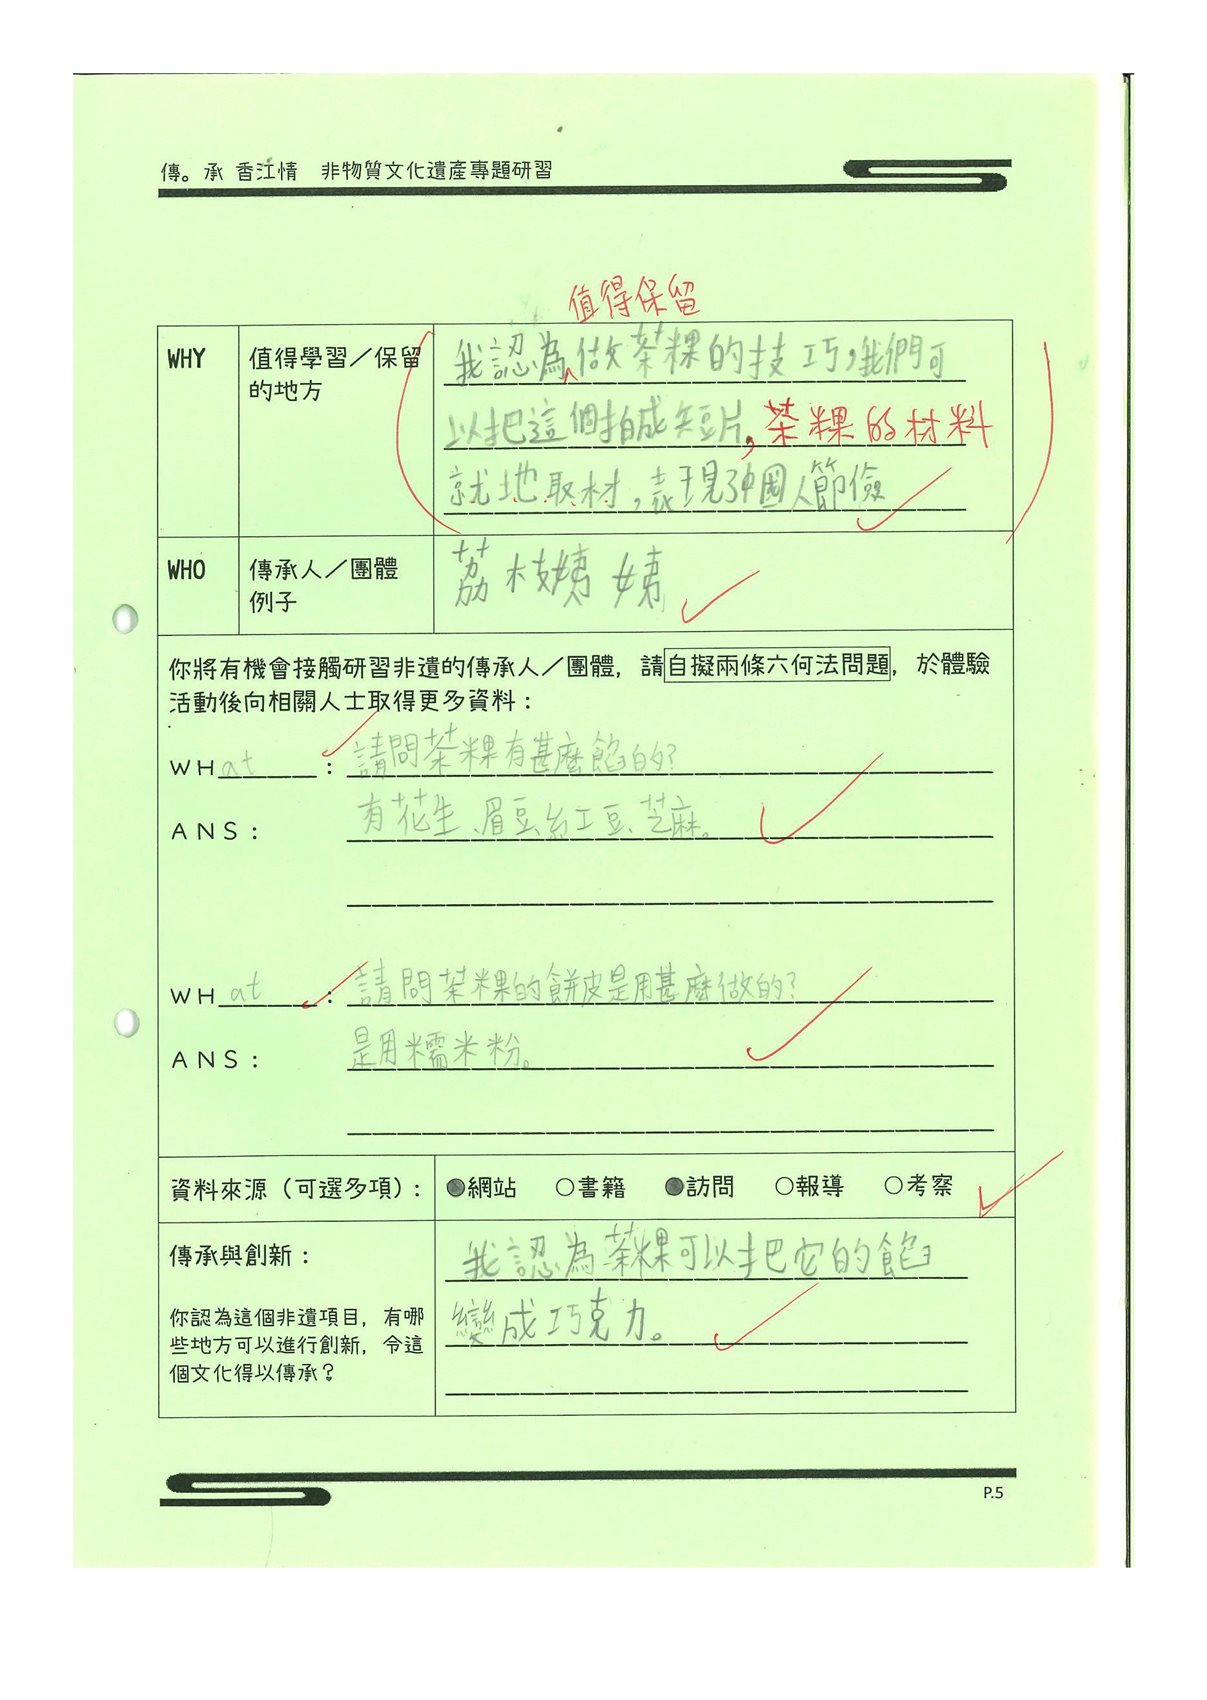 傳。承 香江情　非物質文化遺產專題研習
值得保留
WHY 值得學習／保留的地方
我認為做茶粿的技巧，我們可
以把這個拍成短片，茶粿的材料
就地取材，表現中國人節儉
WHO 傳承人／團體例子
荔枝姨姨
你將有機會接觸研習非遺的傳承人／團體，請自擬兩條六何法問題，於體驗
活動後向相關人士取得更多資料：
WHat：請問茶粿有甚麼餡的？
ANS：有花生、眉豆、紅豆、芝麻。
WHat：請問茶粿的餅皮是用甚麼做的？
ANS：是用糯米粉。
資料來源（可選多項）：●網站 ○書籍 ●訪問 ○報導 ○考察
傳承與創新：
你認為這個非遺項目，有哪
些地方可以進行創新，令這
個文化得以傳承？
我認為茶粿可以把它的餡
變成巧克力。
P.5